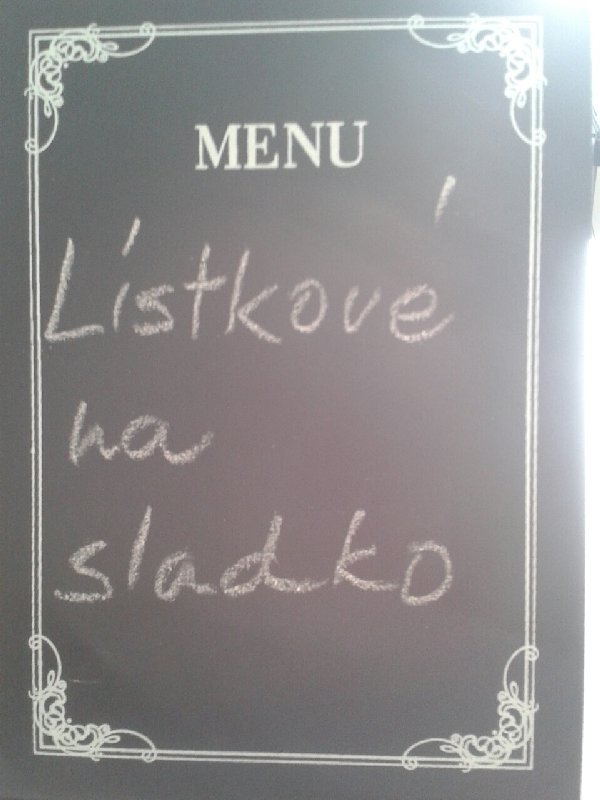 MENU
Lístkové
na
sladko